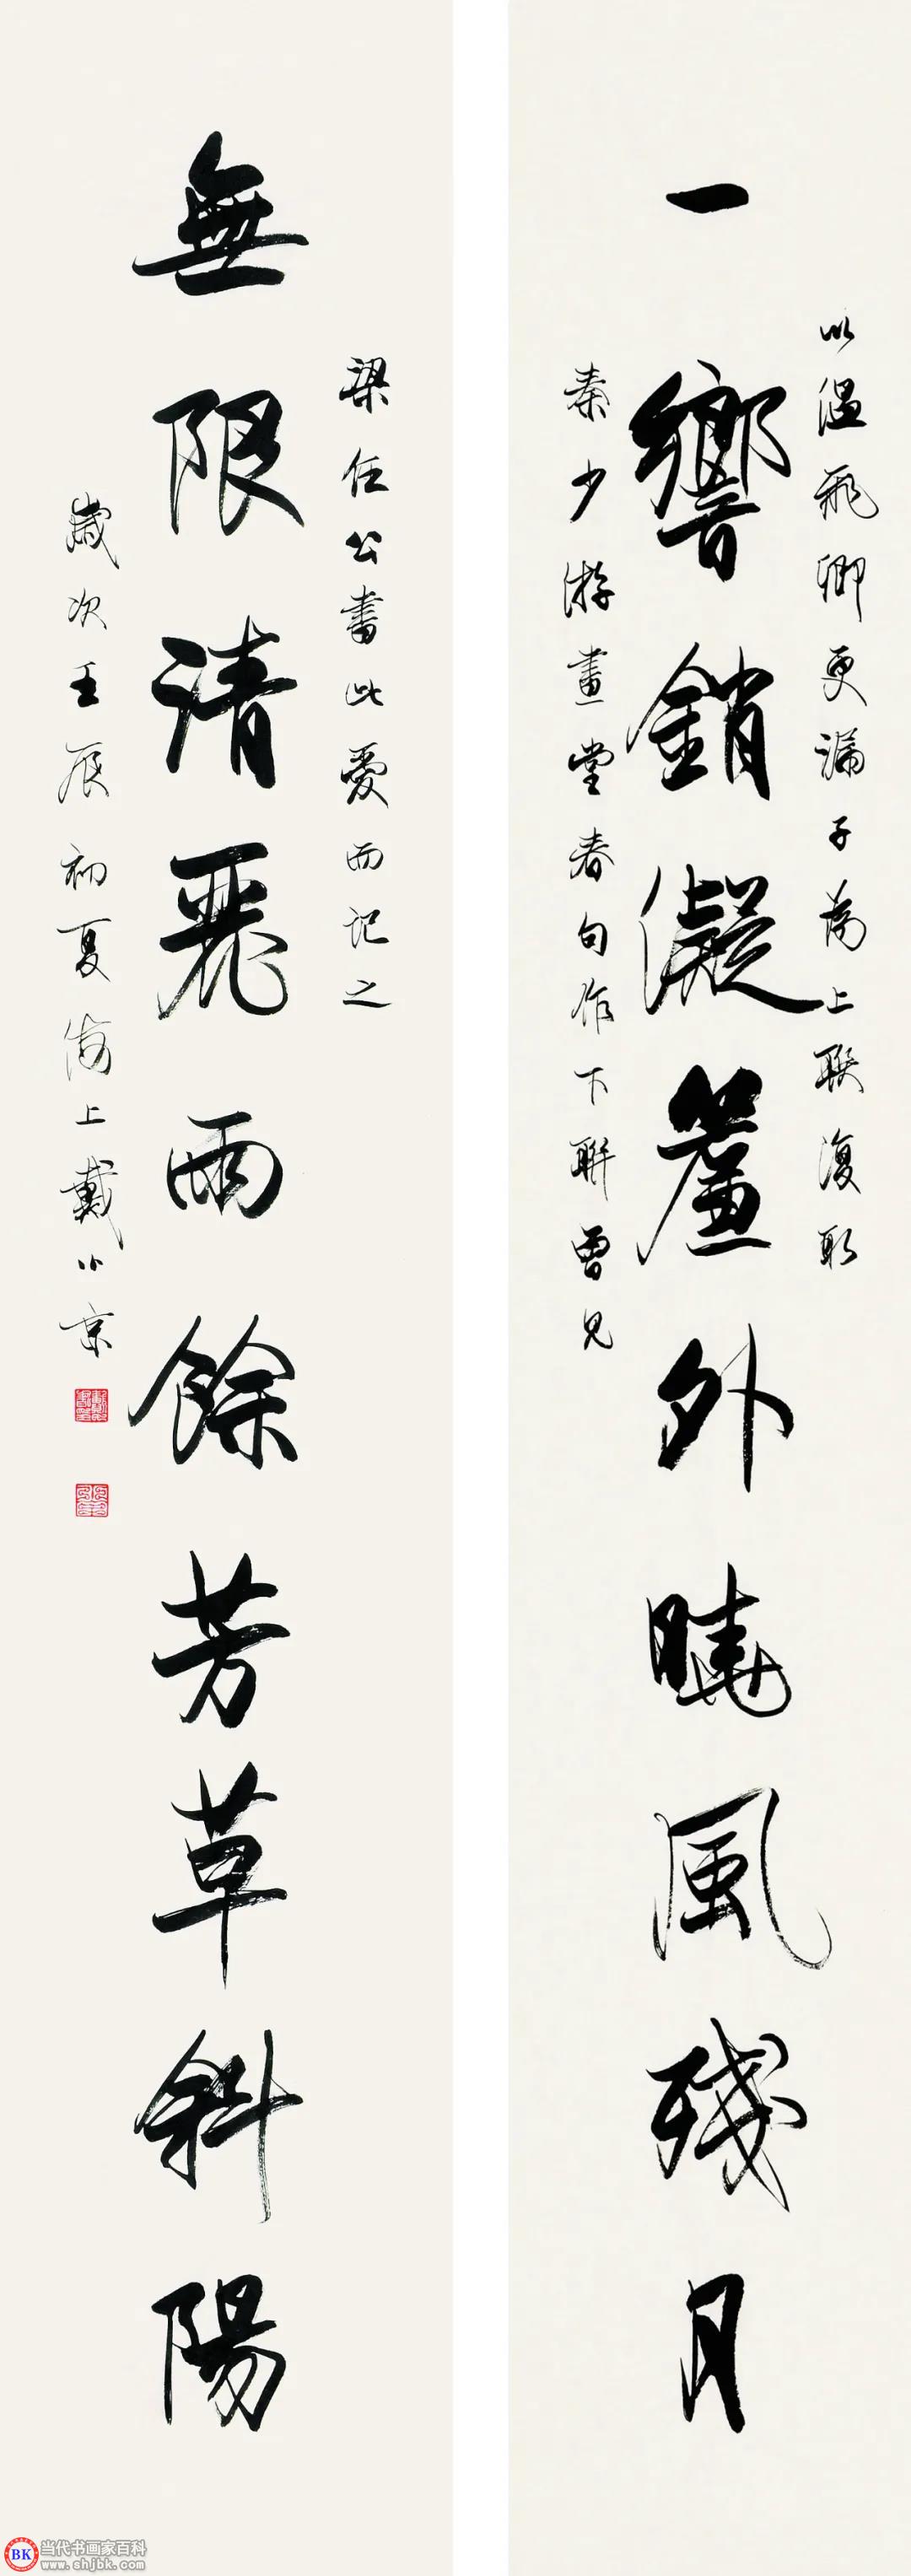 以溫飛卿更漏子為上联復取
一響銷凝簾外曉風殘月
秦少游畫堂春句作下聯曾見
梁任公書此愛而記之
無限清麗雨餘芳草斜陽
歲次壬辰初夏海上戴小京
BK
当代书画家百科
www.shjbk.com